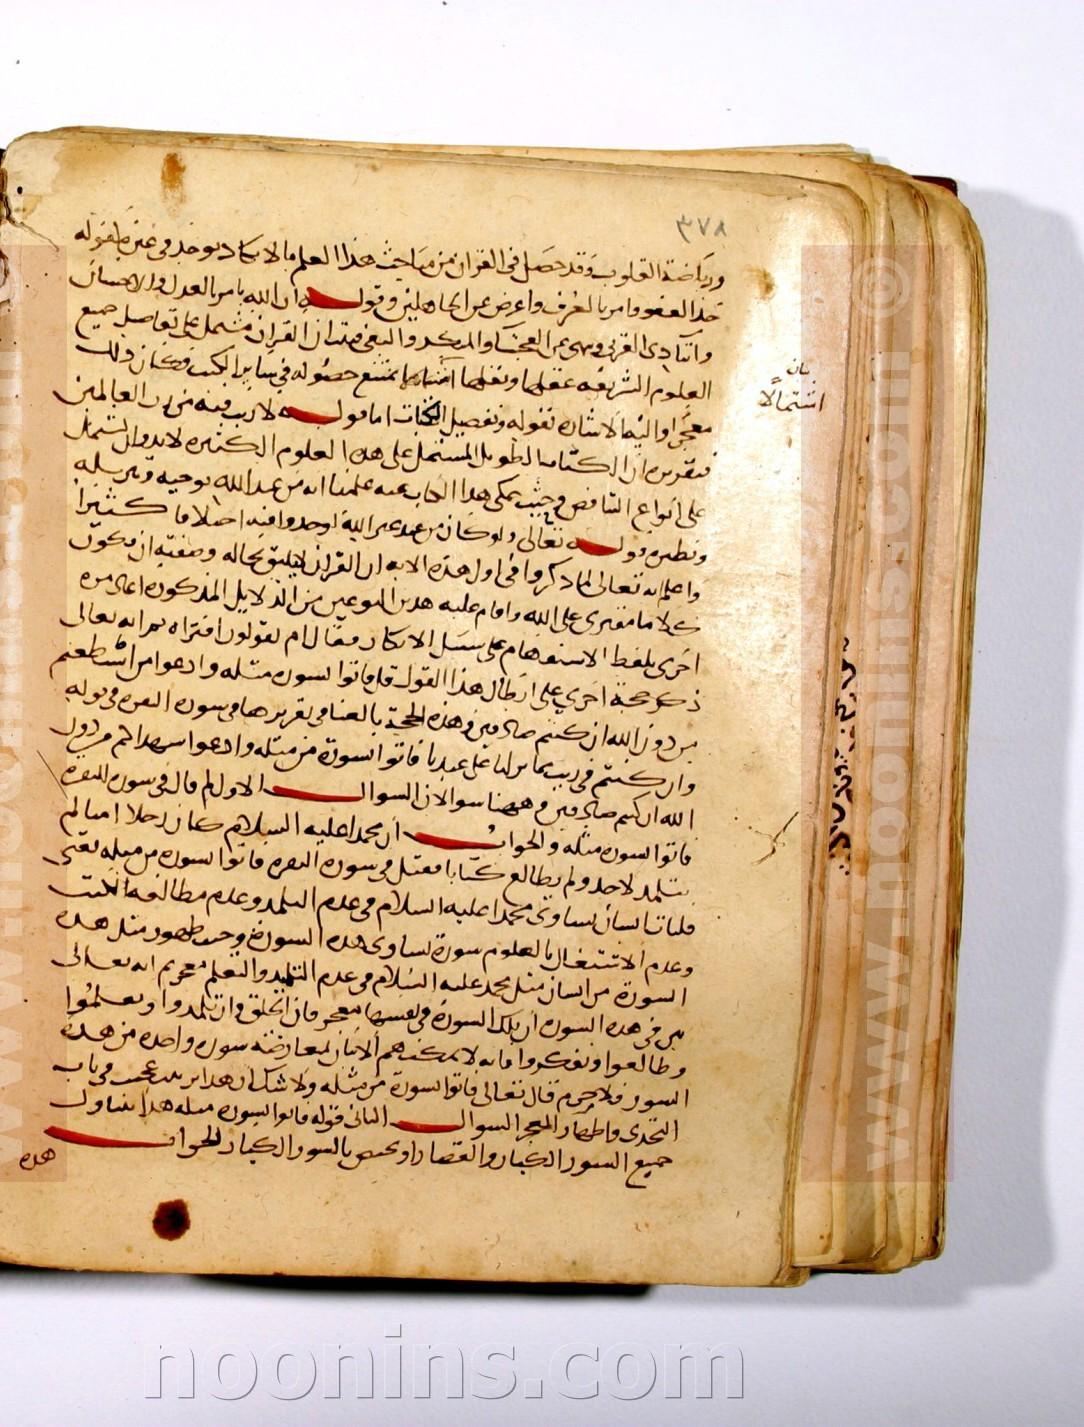 ٣٧٨
ورياضة القلوب وقد حصل في القران من مباحث هذا العلم ما لا يكاد يوجد في غيره كقوله
خذ العفو وامر بالعرف واعرض عن الجاهلين وقوله ان الله يامر بالعدل والاحسان
وايتاء ذي القربى وينهى عن الفحشاء والمنكر والبغي فثبت ان القران مشتمل على تفاصيل جميع
العلوم الشريفه عقليها ونقليها اشتمالا يمتنع حصوله في ساير الكتب فكان ذلك
معجزا واليه الاشاره بقوله وتفصيل الكتاب اما قوله لا ريب فيه من رب العالمين
فتقريره ان الكتاب الطويل المشتمل على هذه العلوم الكثيره لا بد وان يشتمل
على انواع التناقض وحيث خلى هذا الكتاب عنه علمنا انه من عند الله بوحيه وتنزيله
ونظيره قوله تعالى ولو كان من عند غير الله لوجدوا فيه اختلافا كثيرا
واعلم انه تعالى لما ذكر في اول هذه الايه ان القران لا يليق بحاله وصفته ان يكون
كلاما مفترى على الله واقام عليه هذين النوعين من الدلايل المذكوره اعاد مره
اخرى بلفظ الاستفهام على سبيل الانكار فقال ام يقولون افتراه ثم انه تعالى
ذكر حجة اخرى على ابطال هذا القول قل فاتوا بسوره مثله وادعوا من استطعتم
من دون الله ان كنتم صادقين وهذه الحجة بالغنا في تقريرها في سوره البقره في قوله
وان كنتم في ريب مما نزلنا على عبدنا فاتوا بسورة من مثله وادعوا شهداكم من دون
الله ان كنتم صادقين وههنا سوالان السوال الاول لم قال في سوره البقره
فاتوا بسوره مثله والجواب ان محمدا عليه السلام كان رجلا اميا لم
يتلمذ لاحد ولم يطالع كتابا فقيل في سوره البقره فاتوا بسوره من مثله يعني
فليات انسان يساوي محمدا عليه السلام في عدم التلمذ وعدم مطالعه الكتب
وعدم الاشتغال بالعلوم بسورة تساوي هذه السورة وحيث ظهور مثل هذه
السورة من انسان مثل محمد عليه السلام في عدم التلمذ والتعلم معجز ثم انه تعالى
بين في هذه السوره ان تلك السورة في نفسها معجز فان الخلق وان تلمذوا وتعلموا
وطالعوا وتفكروا فانه لا يمكنهم الاتيان بمعارضة سوره واحده من هذه
السور فلا جرم قال تعالى فاتوا بسورة من مثله ولا شك ان هذا ترتيب عجيب في باب
التحدي واظهار المعجز السوال الثاني قوله فاتوا بسوره مثله هذا يتناول
جميع السور الكبار والقصار او يختص بالسور الكبار الجواب
هذه
بيان
اشتمالا
noonins.com
www.noonins.com ©